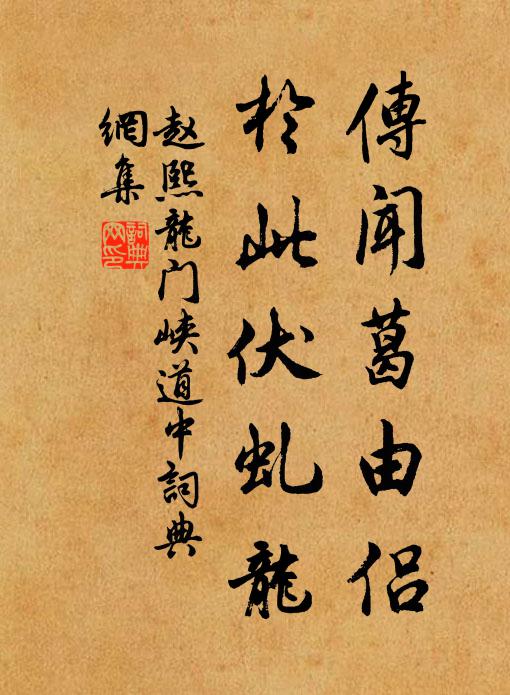 傳聞葛由侣
於此伏虬龍
赵熙龍门峡道中詞典
網集
詞典
网印